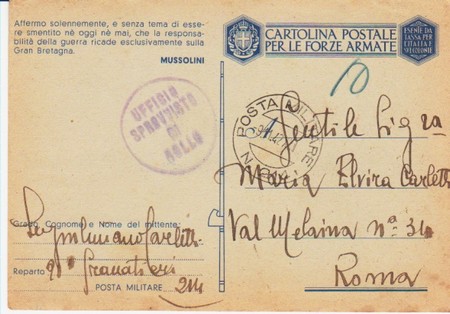 Affermo solennemente, e senza tema di esse-
re smentito né oggi né mai, che la responsa-
bilità della guerra ricade esclusivamente sulla
Gran Bretagna.
MUSSOLINI
CARTOLINA POSTALE
PER LE FORZE ARMATE
ESENTE DA
TASSA PER
L'ITALIA E
SUE COLONIE
10
UFFICIO
SPROVVISTO
DI
BOLLO
POSTA MILITARE
Gentile Sig.ra
Maria Elvira Carletti
Val Melaina n.a 34
Roma
Grado, Cognome e Nome del mittente:
Carletti
Reparto Granatieri
POSTA MILITARE 214